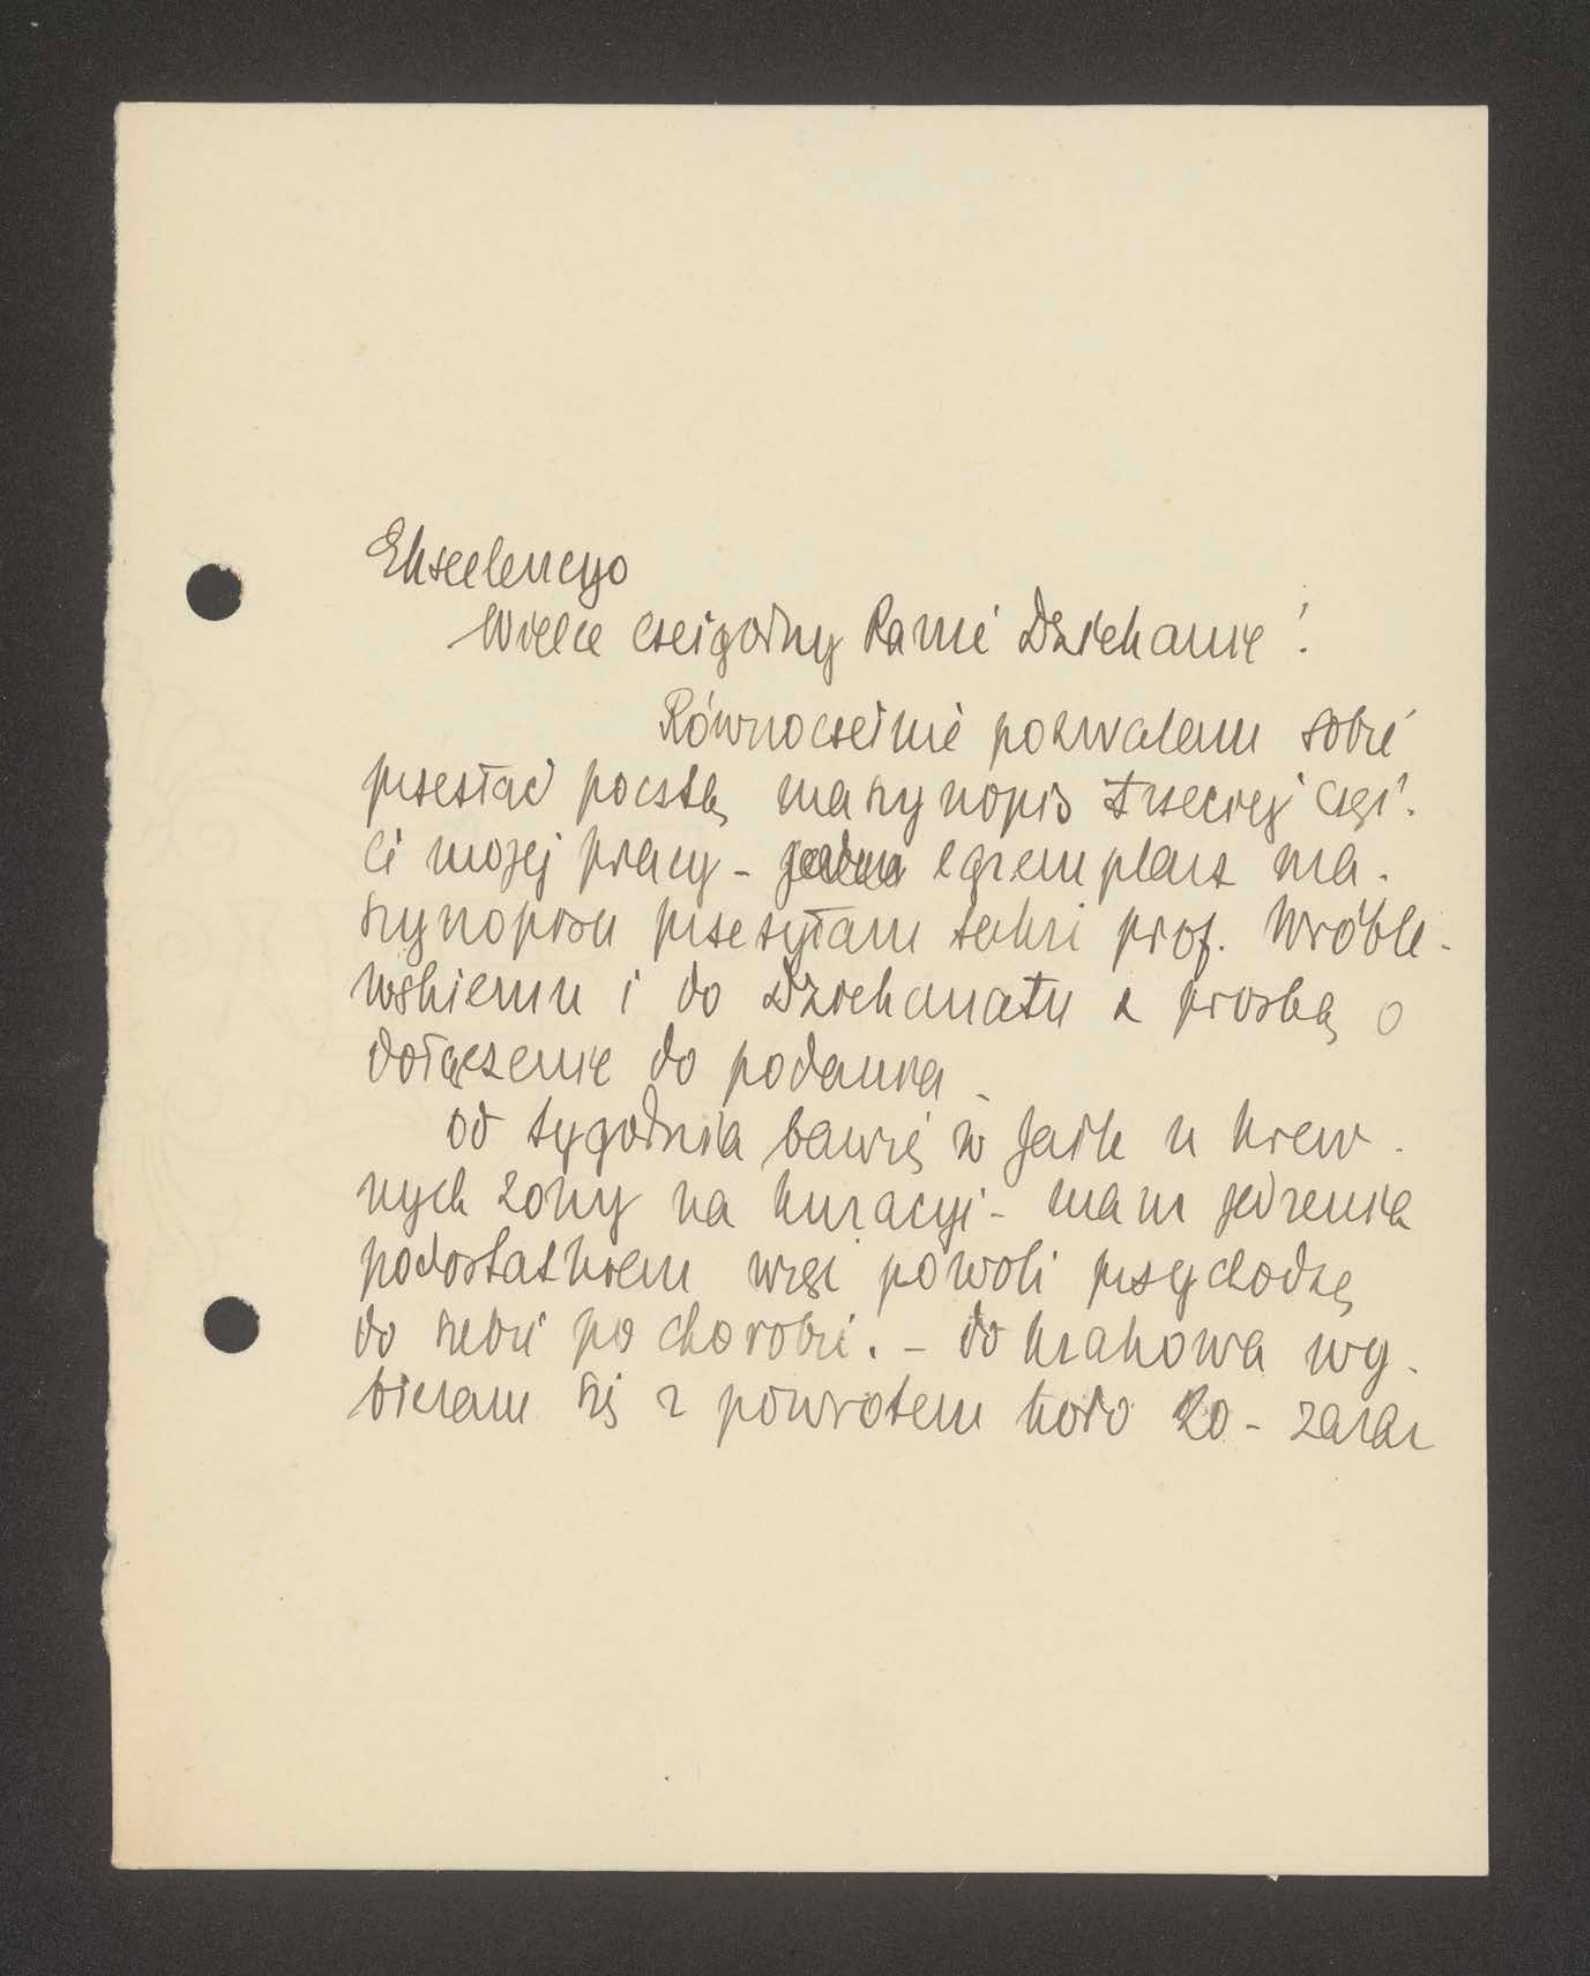 Ekscelencyo
Wielce czcigodny Panie Dziekanie!
Równocześnie pozwalam sobie
przesłać pocztą maszynopis trzeciej częś-
ci mojej pracy - jeden egzemplarz ma-
szynopisu przesyłam także prof. Wróble-
wskiemu i do Dziekanatu z prośbą o
dołączenie do podania -
Od tygodnia bawię w Jaśle u krew-
nych żony na kuracyi - mam jedzenia
podostatkiem więc powoli przychodzę
do siebie po chorobie. - do Krakowa wy-
bieram się z powrotem koło 20 - zaraz